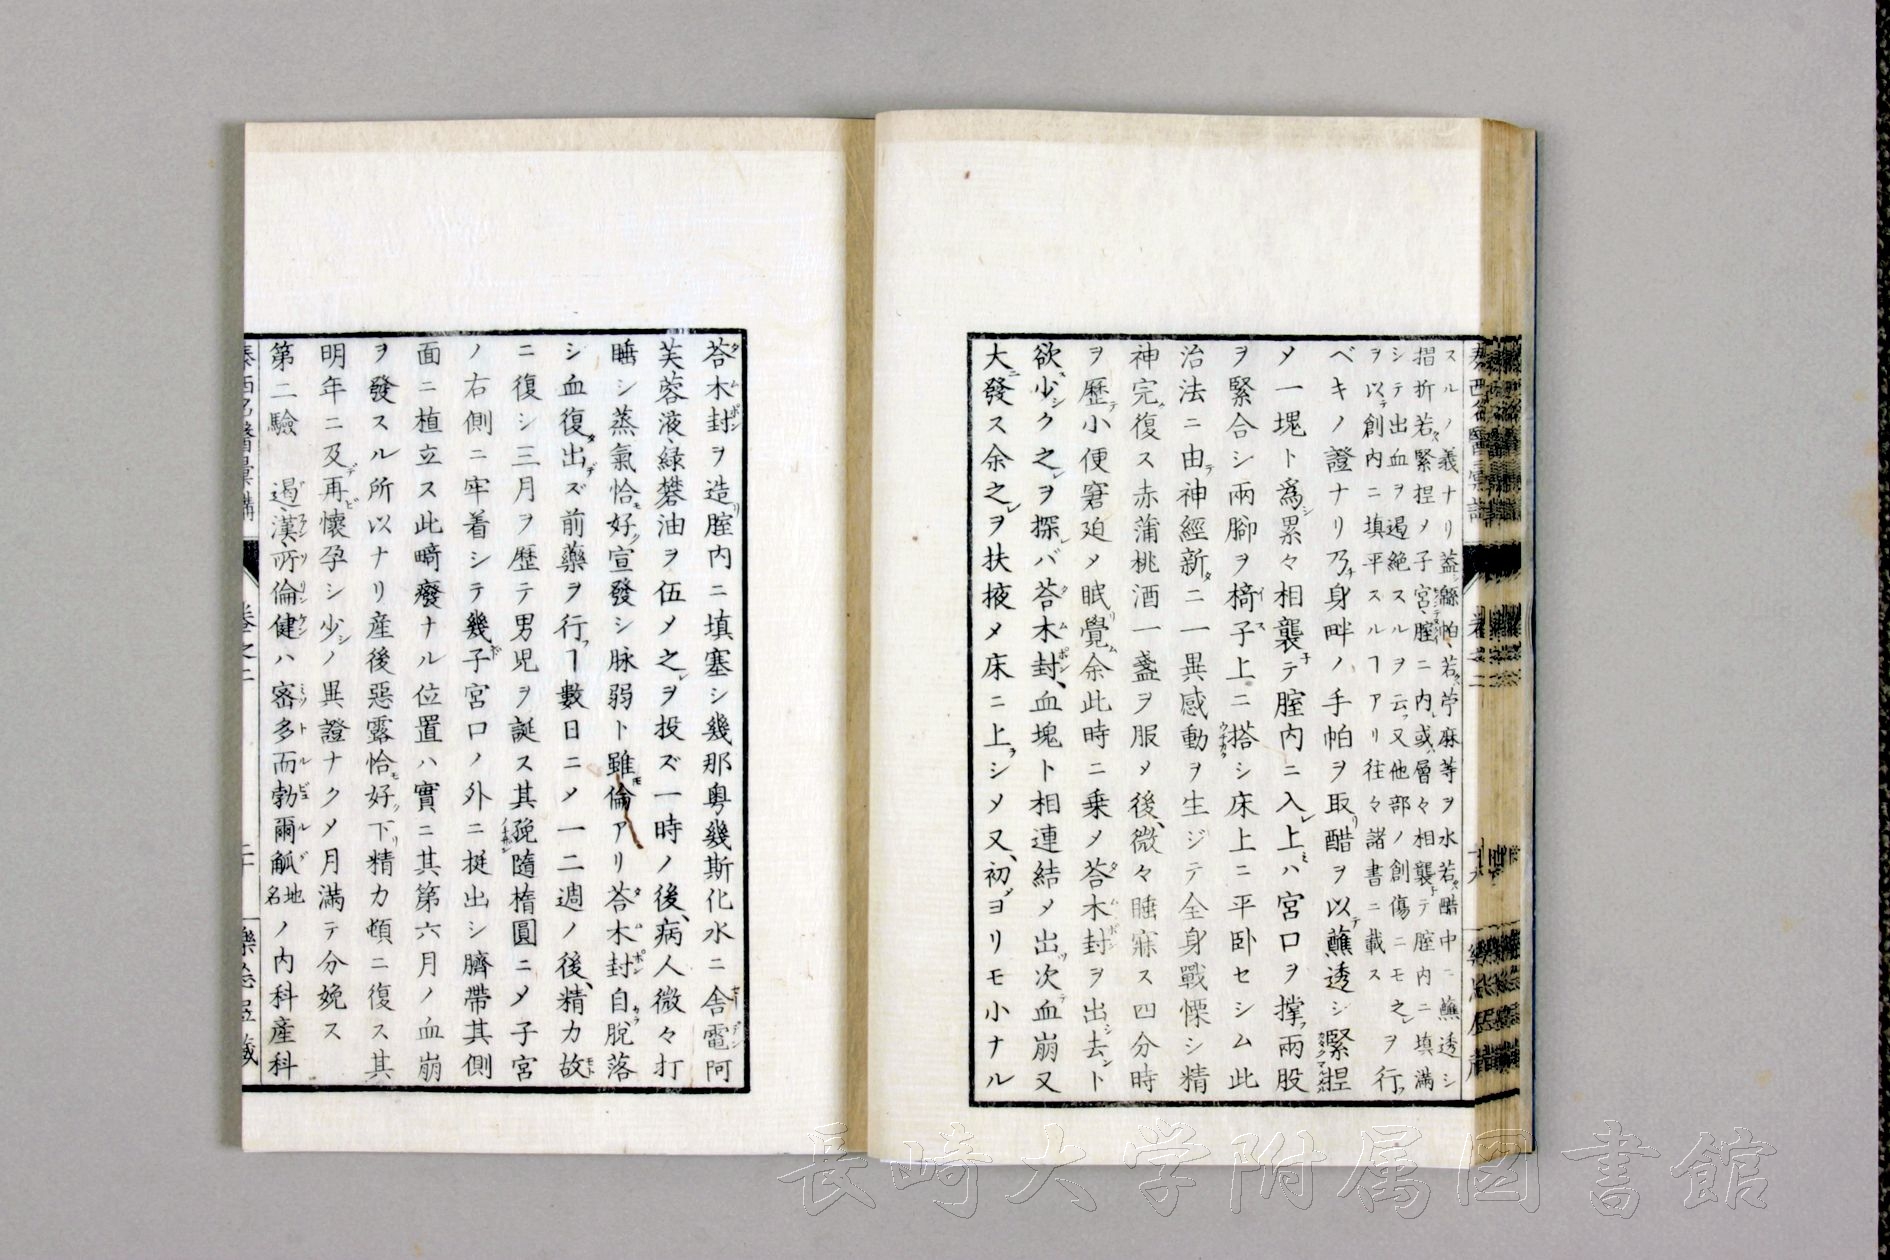 スルノ義ナリ蓋シ緜帕、若クハ苧麻等ヲ水若クハ醋中ニ蘸透シ
摺折若クハ緊捏メ子宮、腟ニ内レ或ハ層々相襲テ腟内ニ填満
シテ出血ヲ遏絶スルヲ云フ又他部ノ創傷ニモ之レヲ行フ
ヲ以テ創内ニ填平スルヿアリ往々諸書ニ載ス
ベキノ證ナリ乃チ身畔ノ手帕ヲ取リ醋ヲ以テ蘸透シ緊捏
メ一塊ト爲シ累々相襲テ腟内ニ入レ上ミハ宮口ヲ撑フ兩股
ヲ緊合シ兩脚ヲ椅子上ニ搭シ床上ニ平卧セシム此
治法ニ由テ神經新タニ一異感動ヲ生ジテ全身戰慄シ精
神完復ス赤蒲桃酒一盞ヲ服メ後、微々睡寐ス四分時
ヲ歴テ小便窘廹メ眠リ覺ム余此時ニ乗メ荅木封ヲ出シ去ント
欲シ少シク之レヲ探レバ荅木封、血塊ト相連結メ出ツ次テ血崩又
大ニ發ス余之レヲ扶掖メ床ニ上ラシメ又、初メヨリモ小ナル
荅木封ヲ造リ腟内ニ填塞シ幾那粤幾斯化水ニ舎電阿
芙蓉液、緑礬油ヲ伍メ之レヲ投ズ一時ノ後、病人微々打
睡シ蒸氣恰モ好ク宣發シ脉弱ト雖モ倫アリ荅木封自ラ脱落
シ血復タ出デズ前藥ヲ行フヿ數日ニメ一二週ノ後、精力故
ニ復シ三月ヲ歴テ男児ヲ誕ス其㝃随楕圓ニメ子宮
ノ右側ニ牢着シテ幾ボ子宮口ノ外ニ挺出シ臍帶其側
面ニ植立ス此畸癈ナル位置ハ實ニ其第六月ノ血崩
ヲ發スル所以ナリ産後惡露恰モ好ク下リ精力頓ニ復ス其
明年ニ及デ再ビ懷孕シ少シノ異證ナクメ月満テ分娩ス
第二驗 遏、漢、所倫健ハ密多而勃爾觚地名ノ内科産科